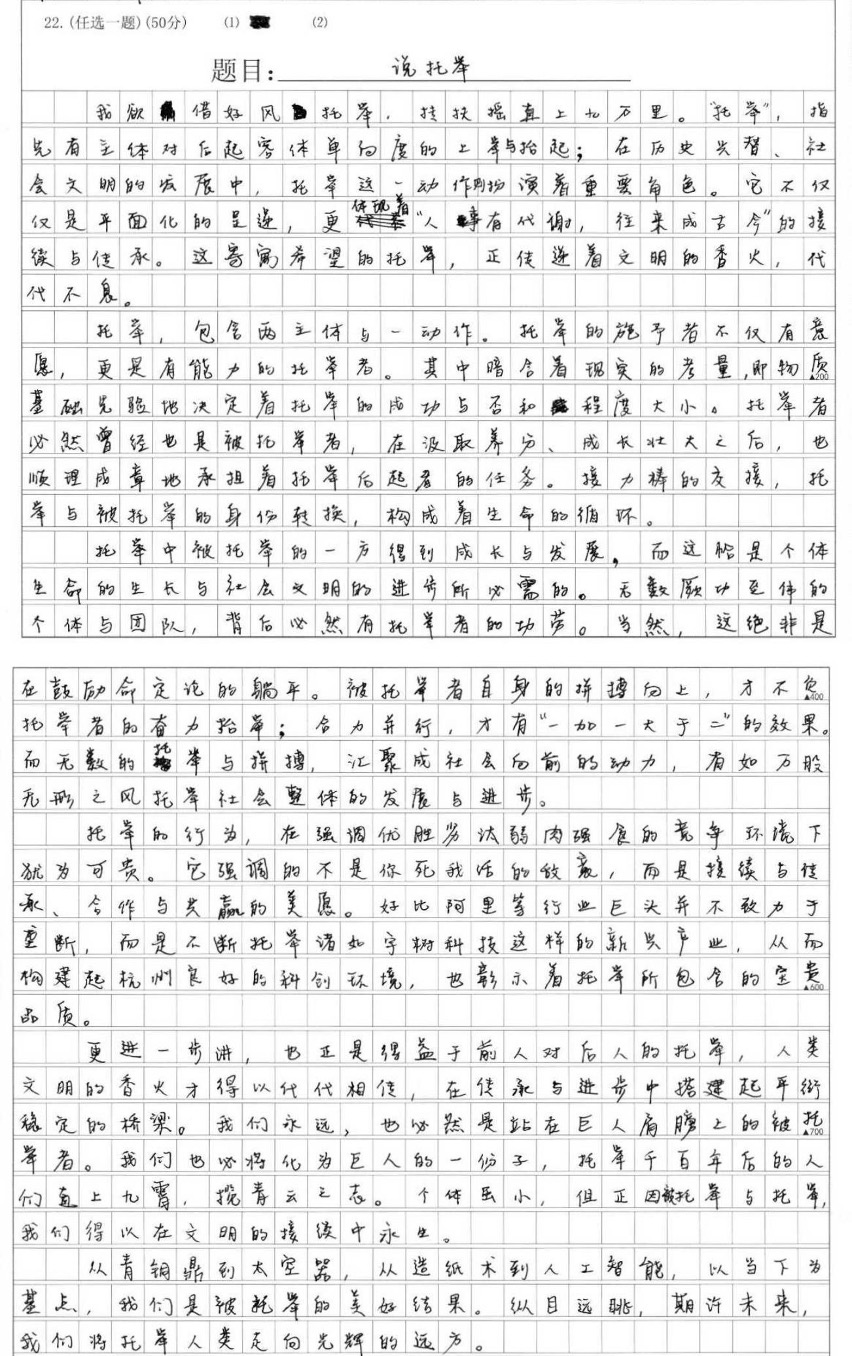 22.(任选一题)(50分) (1) (2)
题目: 说托举
我欲借好风托举,扶摇直上九万里。"托举",指
先有主体对后起客体单向度的上举与抬起;在历史兴替、社
会文明的发展中,托举这一动作则扮演着重要角色。它不仅
仅是平面化的呈递,更体现着"人事有代谢,往来成古今"的接
续与传承。这寄寓希望的托举,正传递着文明的香火,代
代不息。
托举,包含两主体与一动作。托举的施予者不仅有意
愿,更是有能力的托举者。其中暗含着现实的考量,即物质
▲200
基础先验地决定着托举的成功与否和程度大小。托举者
必然曾经也是被托举者,在汲取养分、成长壮大之后,也
顺理成章地承担着托举后起者的任务。接力棒的交接,托
举与被托举的身份转换,构成着生命的循环。
托举中被托举的一方得到成长与发展,而这恰是个体
生命的生长与社会文明的进步所必需的。无数厥功至伟的
个体与团队,背后必然有托举者的功劳。当然,这绝非是
在鼓励命定论的躺平。被托举者自身的拼搏向上,才不负
▲400
托举者的奋力抬举;合力并行,才有"一加一大于二"的效果。
而无数的托举与拼搏,汇聚成社会向前的动力,有如万般
无形之风托举社会整体的发展与进步。
托举的行为,在强调优胜劣汰弱肉强食的竞争环境下
犹为可贵。它强调的不是你死我活的敌意,而是接续与传
承、合作与共赢的美愿。好比阿里等行业巨头并不致力于
垄断,而是不断托举诸如宇树科技这样的新兴产业,从而
构建起杭州良好的科创环境,也彰示着托举所包含的宝贵
▲600
品质。
更进一步讲,也正是得益于前人对后人的托举,人类
文明的香火才得以代代相传,在传承与进步中搭建起平衡
稳定的桥梁。我们永远,也必然是站在巨人肩膀上的被托
▲700
举者。我们也必将化为巨人的一份子,托举千百年后的人
们直上九霄,揽青云之志。个体虽小,但正因被托举与托举,
我们得以在文明的接续中永生。
从青铜鼎到太空器,从造纸术到人工智能,以当下为
基点,我们是被托举的美好结果。纵目远眺,期许未来,
我们将托举人类走向光辉的远方。